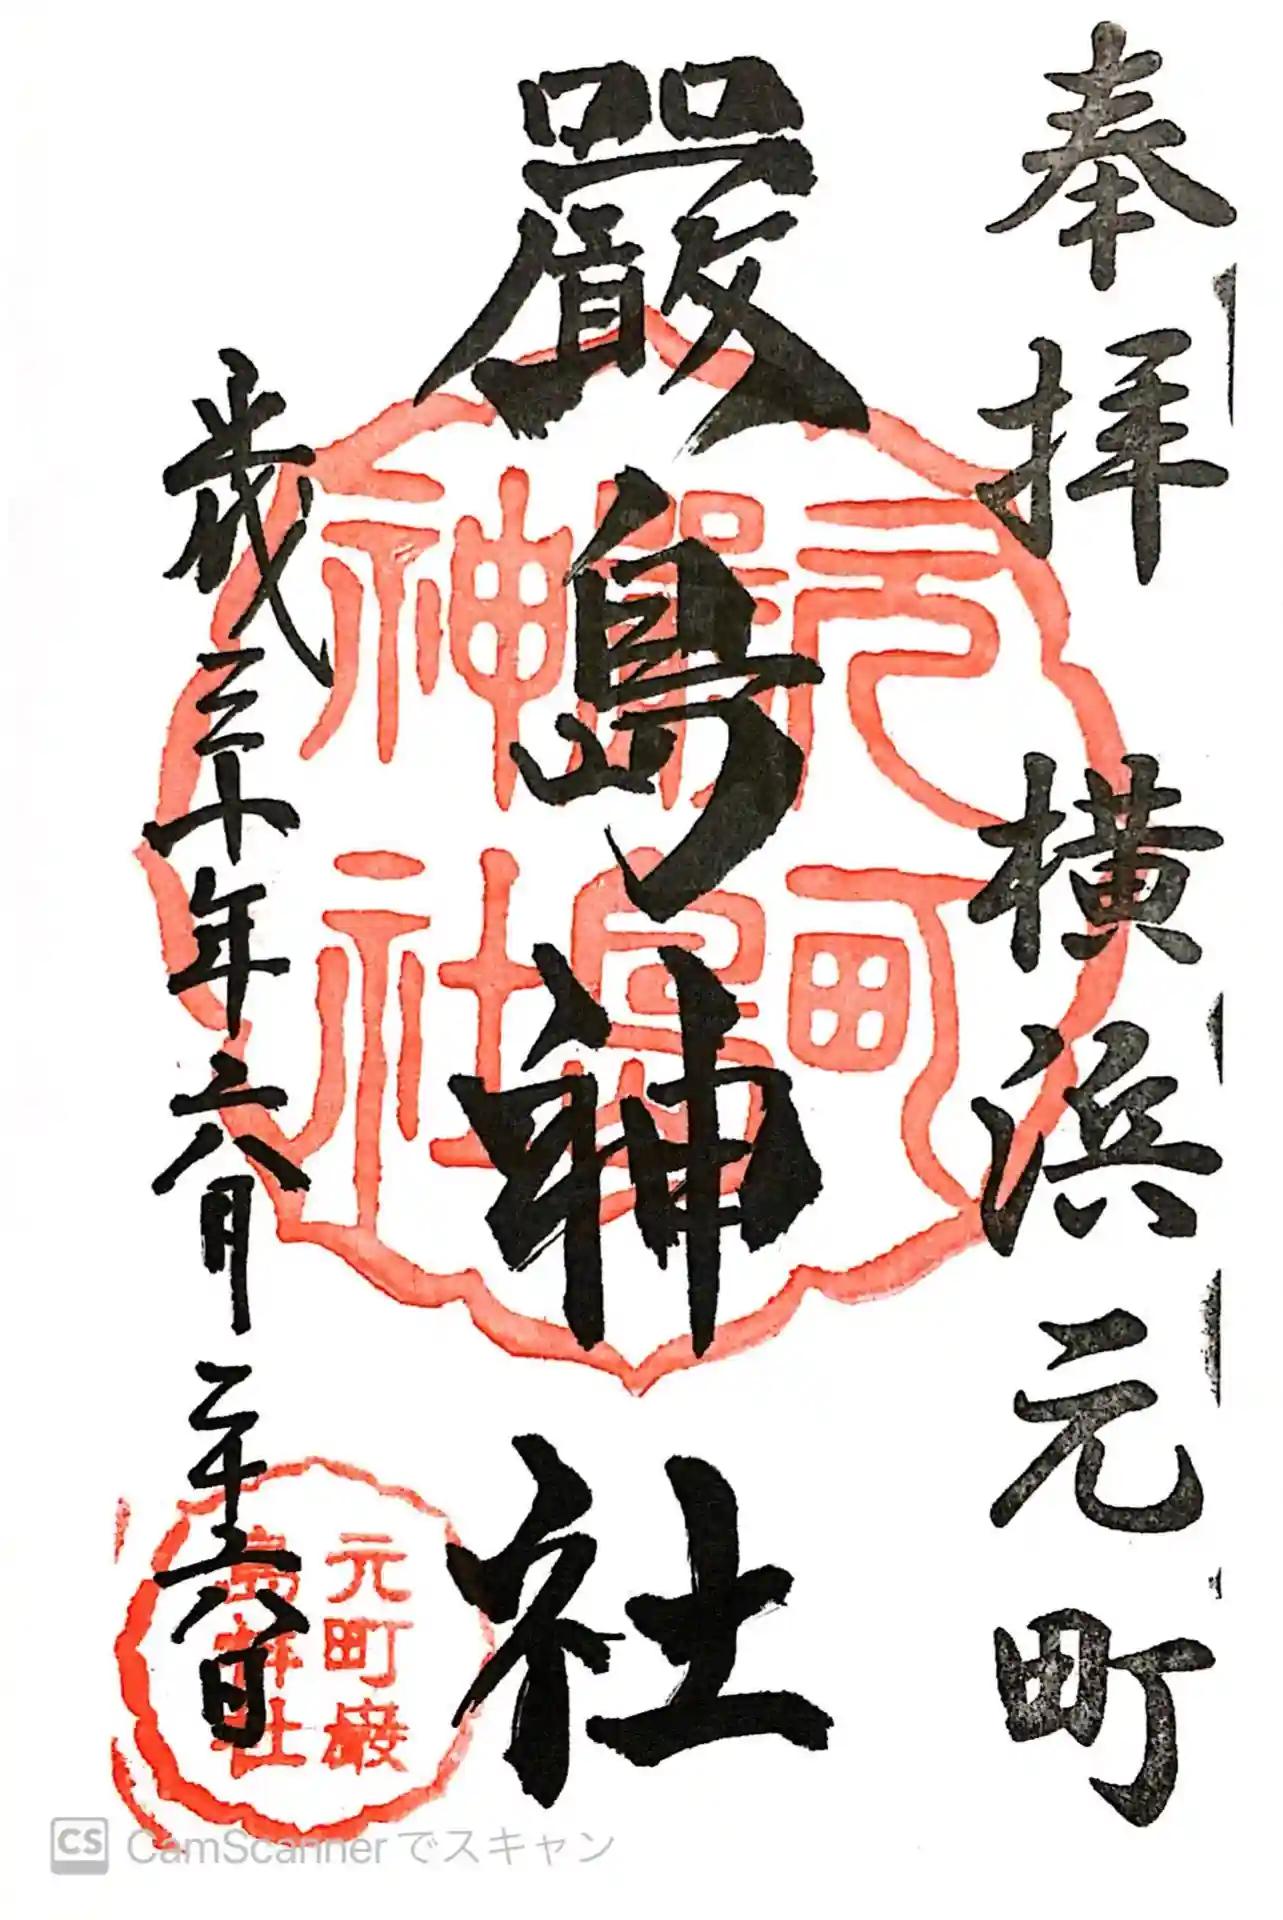 奉拝　横浜元町
嚴島神社
平成三十年六月二十六日
元町
嚴島
神社
元町嚴
島神社
CS CamScannerでスキャン